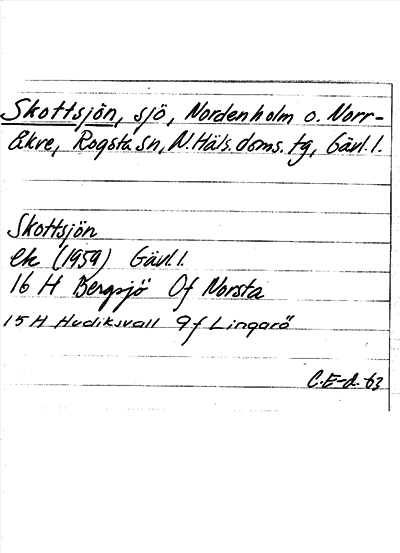 Skottsjön, sjö, Nordenholm o. Norr-
åkre, Rogsta sn, N. Häls. doms. tg, Gävl. l.
Skottsjön
ek (1959) Gävl. l.
16 H Bergsjö 0f Norsta
15 H Hudiksvall 9f Lingarö
C. E-d. 63